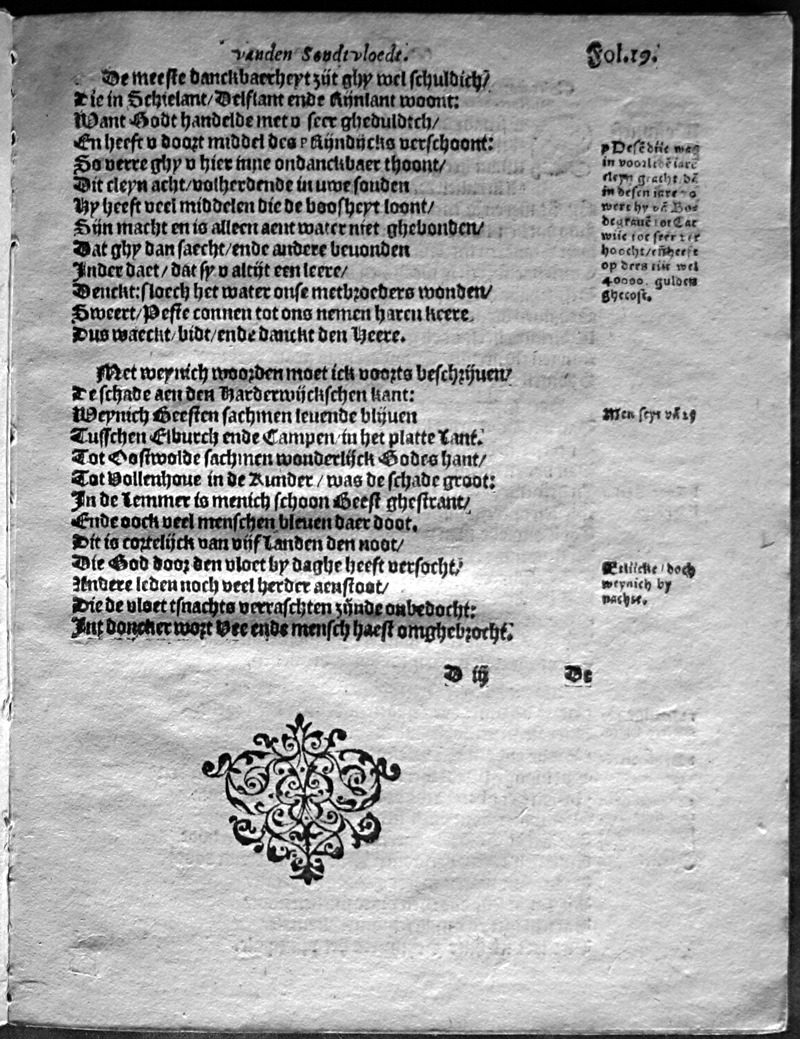 vanden Sondtvloedt.
Fol.19.
De meeste danckbaerheyt zijt ghy wel schuldich/
Die in Schielant/Delflant ende Rijnlant woont:
Want Godt handelde met v seer gheduldich/
En heeft v doort middel des p Rijndijcks verschoont:
So verre ghy v hier inne ondanckbaer thoont/
Dit cleyn acht/volherdende in uwe sonden
Hy heeft veel middelen die de boosheyt loont/
Sijn macht en is alleen aent water niet ghebonden/
Dat ghy dan saecht/ende andere bevonden
Inder daet/dat sy v altijt een leere/
Denckt: sloech het water onse metbroeders wonden/
Sweert/Peste connen tot ons nemen haren keere
Dus waeckt/bidt/ende danckt den Heere.
p Desē dijc was
in voorledē iarē
cleyn
in desen iare
were hy vā
tot
wijc tot seer
hoocht/eñ heeft
op dees tijt wel
40000. gulden
ghecost.
Met weynich woorden moet ick voorts beschrijven/
De schade aen den Harderwijckschen kant:
Weynich Beesten sachmen levende blijven
Tusschen Elburch ende Campen/in het platte Lant.
Tot Oostwolde sachmen wonderlijck Godes hant/
Tot Vollenhove in de Kunder/was de schade groot:
In de Lemmer is menich schoon Beest ghestrant/
Ende oock veel menschen bleven daer doot.
Dit is cortelijck van vijf Landen den noot/
Die God door den vloet by daghe heeft versocht/
Andere leden noch veel herder aenstoot/
Die de vloet tsnachts verraschten zijnde onbedocht:
Int doncker wort Vee ende mensch haest omghebrocht.
Men seyt vā 19
Etlijcke/doch
weynich by
nachte.
D iij
De